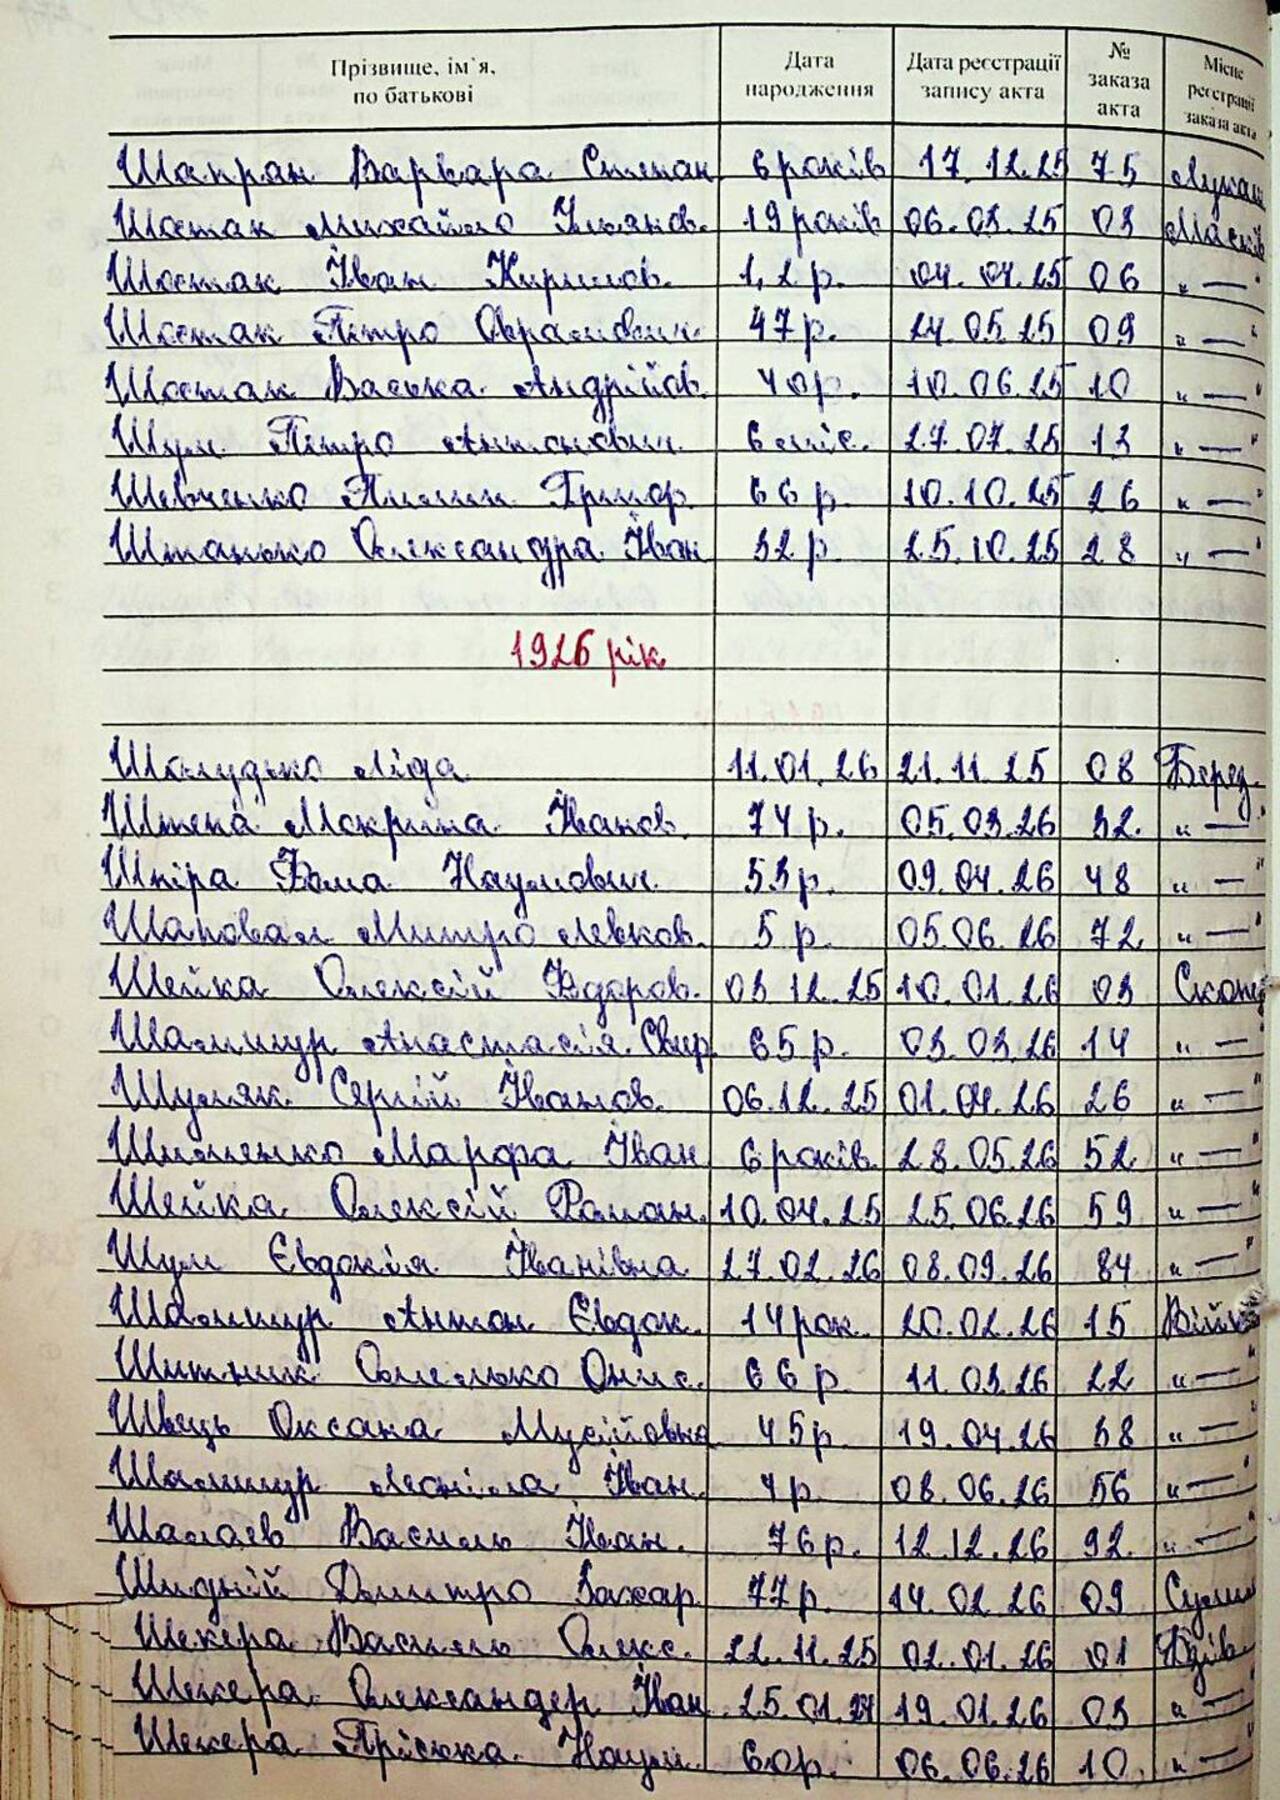 Прізвище, ім'я, по батькові Дата народження Дата реєстрації запису акта № заказа акта Місце реєстрації заказа акта
Шапран Варвара Степан 6 років 17.12.25 75 Лукаш
Шостак Михайло Ульянов. 19 років 06.03.25 03 Масків
Шостак Іван Кирилов. 1,2 р. 04.04.25 06 „—"
Шостак Петро Оврамович. 47 р. 24.05.25 09 „—"
Шостак Васька Андрійов. 40 р. 10.06.25 10 „—"
Шум Петро Антонович. 6 міс. 27.07.25 13 „—"
Шевченко Пилип Григор. 66 р. 10.10.25 26 „—"
Штанько Олександра Іван 32 р. 25.10.25 28 „—"
1926 рік
Шолудько Ліда 11.01.26 21.11.25 08 Берез.
Штепа Мокрина Іванов. 74 р. 05.03.26 32. „—"
Шкіра Фома Наумович. 53 р. 09.04.26 48 „—"
Шаповал Митро Левков. 5 р. 05.06.26 72 „—"
Шейка Олексій Фдоров. 03.12.25 10.01.26 03 Скоп
Шалимур Анастасія Свир. 65 р. 03.03.26 14 „—"
Шуляк Сергій Іванов. 06.12.25 01.04.26 26 „—"
Шиленко Марфа Іван 6 років 28.05.26 52 „—"
Шейка Олексій Роман. 10.04.25 25.06.26 59 „—"
Шум Євдокія Іванівна 27.02.26 08.09.26 84 „—"
Шалимур Антон Євдок. 14 рок. 20.02.26 15 Війк
Шитник Омелько Онис. 66 р. 11.03.26 22 „—"
Швець Оксана Мусійовна 45 р. 19.04.26 38 „—"
Шалимур Леоніла Іван. 4 р. 08.06.26 56 „—"
Шалаєв Василь Іван. 76 р. 12.12.26 92. „—"
Шидній Дмитро Захар 77 р. 14.02.26 09 Сулим
Шекера Василь Олекс. 22.11.25 02.01.26 01 Вдів.
Шекера Олександер Іван 25.01.24 19.01.26 03 „—"
Шекера Пріська Наум. 60 р. 06.06.26 10. „—"